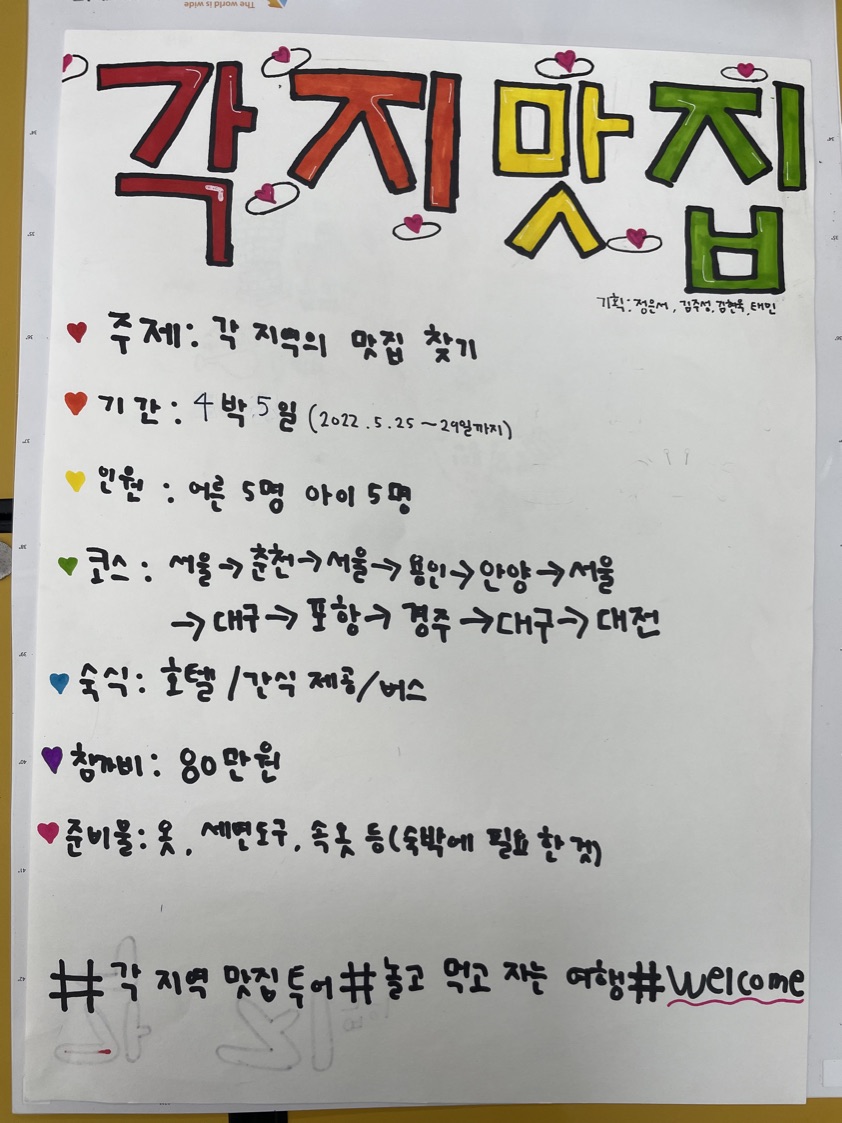 The world is wide
각지맛집
기획: 정은서, 김주성, 김현욱, 태민
주제: 각 지역의 맛집 찾기
기간: 4박 5일 (2022.5.25~29일까지)
인원: 어른 5명 아이 5명
코스: 서울→춘천→서울→용인→안양→서울
→대구→포항→경주→대구→대전
숙식: 호텔/간식 제공/버스
참가비: 80만원
준비물: 옷, 세면도구, 속옷 등(숙박에 필요한 것)
#각 지역 맛집투어#놀고 먹고 자는 여행#welcome